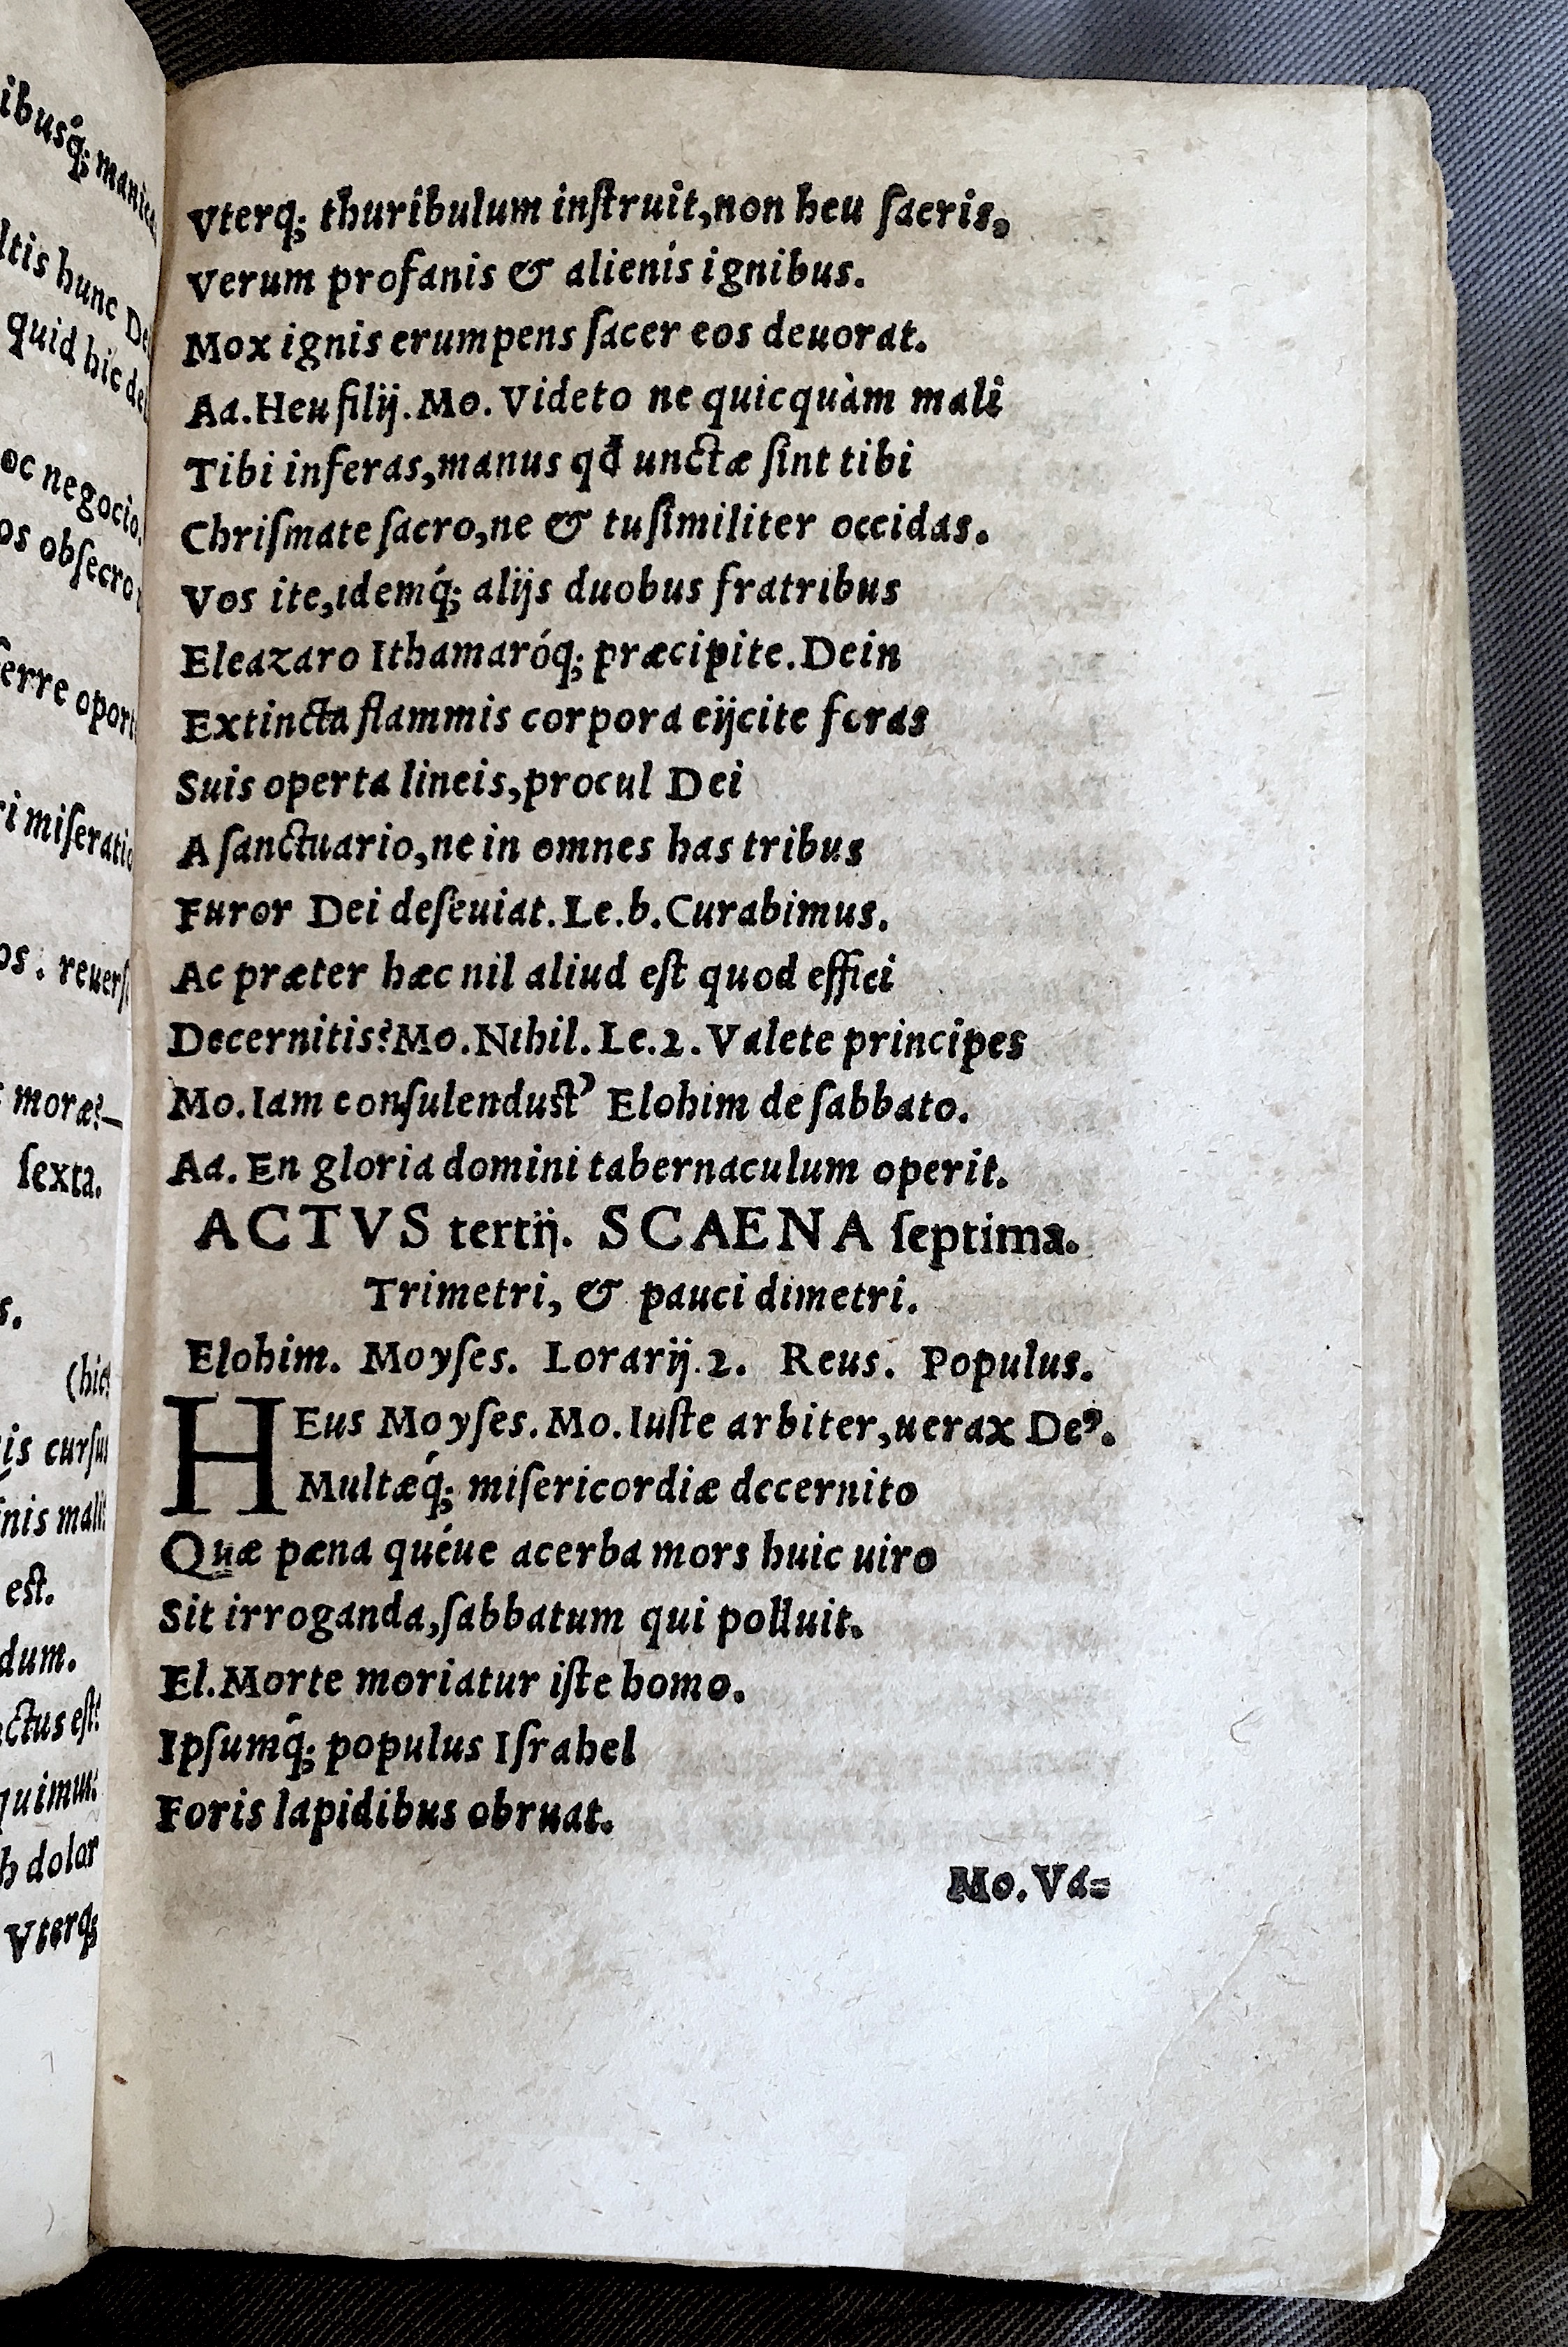 ibusq́;
ltis hunc
quid hic
oc negocio.
os obſecro
ferre
ri
os: reuerſ
moræ?—
ſexta.
s.
(hic
is curſu
nis mali
est.
dum.
ctus eſt:
quimus:
h dolor
Vterq;
Vterq; thuribulum inſtruit,non heu ſacris,
Verum profanis & alienís ignibus.
Mox ignis erumpens ſacer eos deuorat.
Aa.Heu filij.Mo. Videto ne quicquàm mali
Tibi inferas,manus qđ unctæ ſint tibi
Chriſmate ſacro,ne & tu ſimiliter occidas.
Vos ite,idemq́; alijs duobus fratribus
Eleazaro Ithamaróq; præcipite.Dein
Extincta flammis corpora eijcite foras
Suis operta lineis,procul Dei
A ſanctuario,ne in omnes has tribus
Furor Dei deſeuiat.Le.b.Curabimus.
Ac præter hæc nil aliud eſt quod effici
Decernitis?Mo.Nihil.Le.2.Valete principes
Mo.Iam conſulendust' Elohim de ſabbato.
Aa. En gloria domini tabernaculum operit.
ACTVS tertij. SCAENA ſeptima.
Trimetri, & pauci dimetri.
Elohim. Moyſes. Lorarij.2. Reus. Populus.
HEus Moyſes.Mo.Iuſte arbiter,uerax Deꝰ.
Multæq́; miſericordiæ decernito
Quæ pæna quéue acerba mors huic uiro
Sit irroganda,ſabbatum qui polluit.
El.Morte moriatur iſte homo.
Ipſumq́; populus Iſrahel
Foris lapidibus obruat.
Mo.Va=